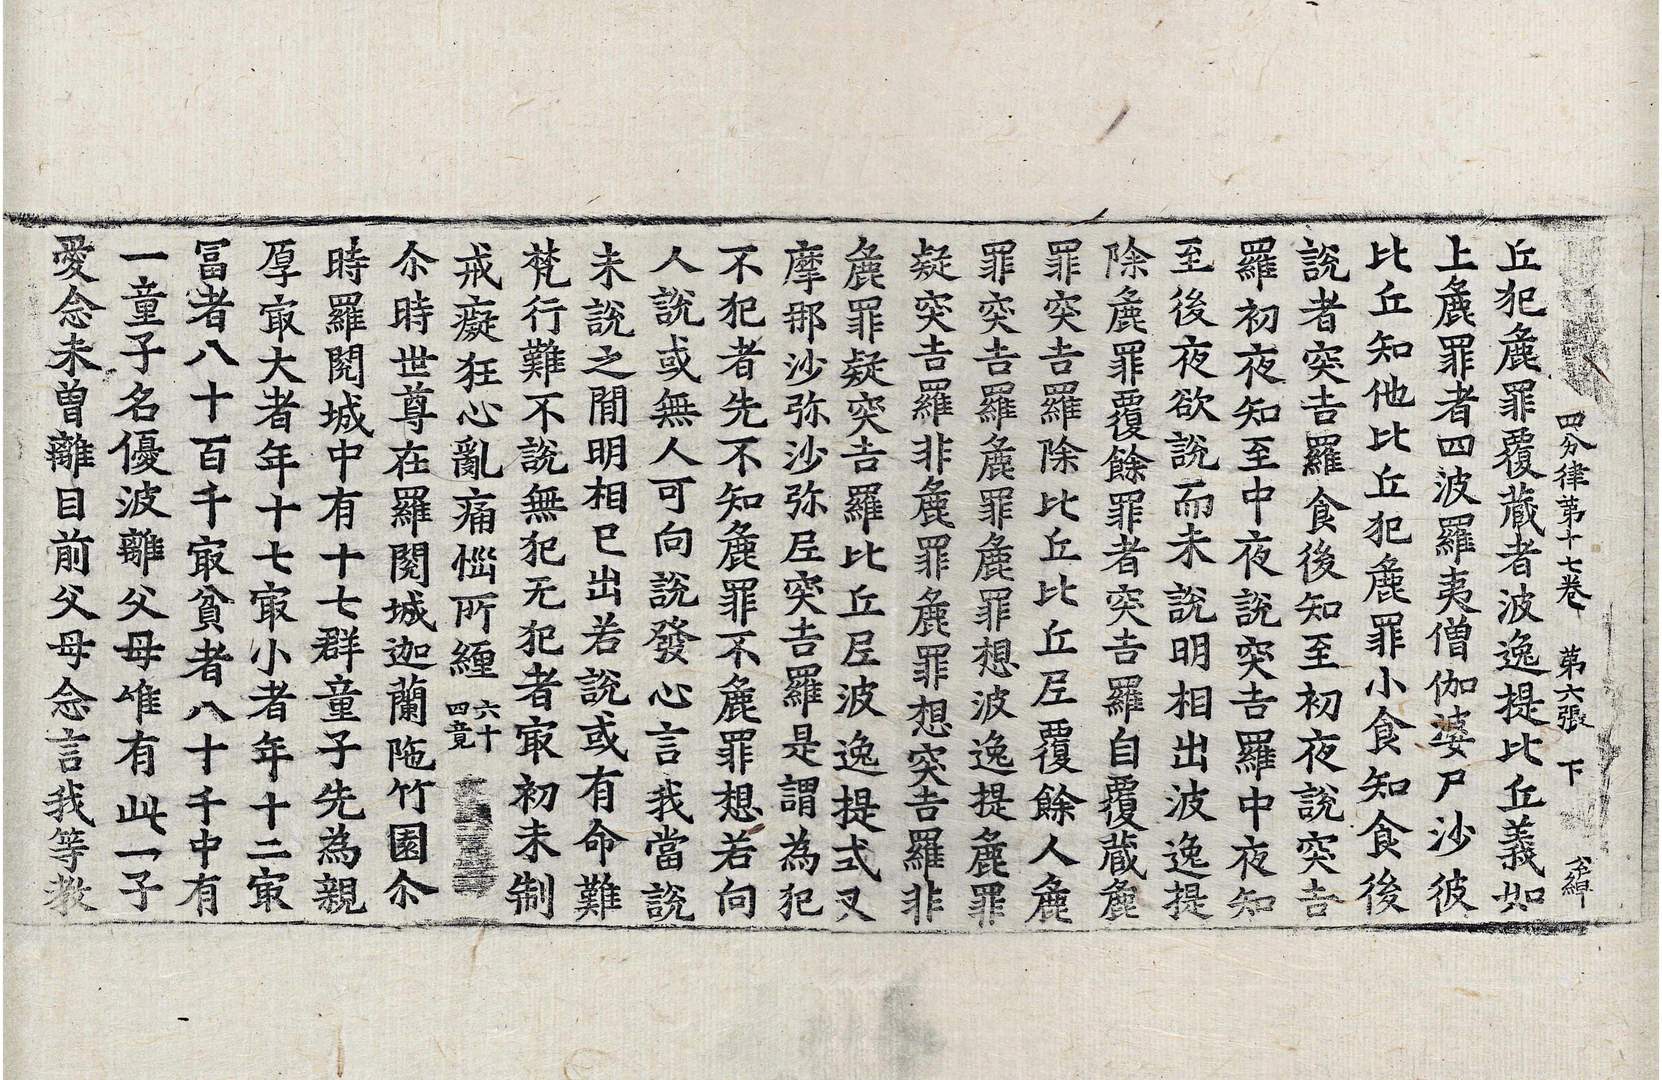 四分律第十七卷 第六張 下
丘犯麁罪覆藏者波逸提比丘義如
上麁罪者四波羅夷僧伽婆尸沙彼
比丘知他比丘犯麁罪小食知食後
說者突吉羅食後知至初夜說突吉
羅初夜知至中夜說突吉羅中夜知
至後夜欲說而未說明相出波逸提
除麁罪覆餘罪者突吉羅自覆藏麁
罪突吉羅除比丘比丘尼覆餘人麁
罪突吉羅麁罪麁罪想波逸提麁罪
疑突吉羅非麁罪麁罪想突吉羅非
麁罪疑突吉羅比丘尼波逸提式叉
摩那沙弥沙弥尼突吉羅是謂為犯
不犯者先不知麁罪不麁罪想若向
人說或無人可向說發心言我當說
未說之間明相已出若說或有命難
梵行難不說無犯无犯者㝡初未制
戒癡狂心亂痛惱所纏 六十四竟
尒時世尊在羅閱城迦蘭陁竹園尒
時羅閱城中有十七群童子先為親
厚㝡大者年十七㝡小者年十二㝡
冨者八十百千㝡貧者八十千中有
一童子名優波離父母唯有此一子
愛念未曾離目前父母念言我等教